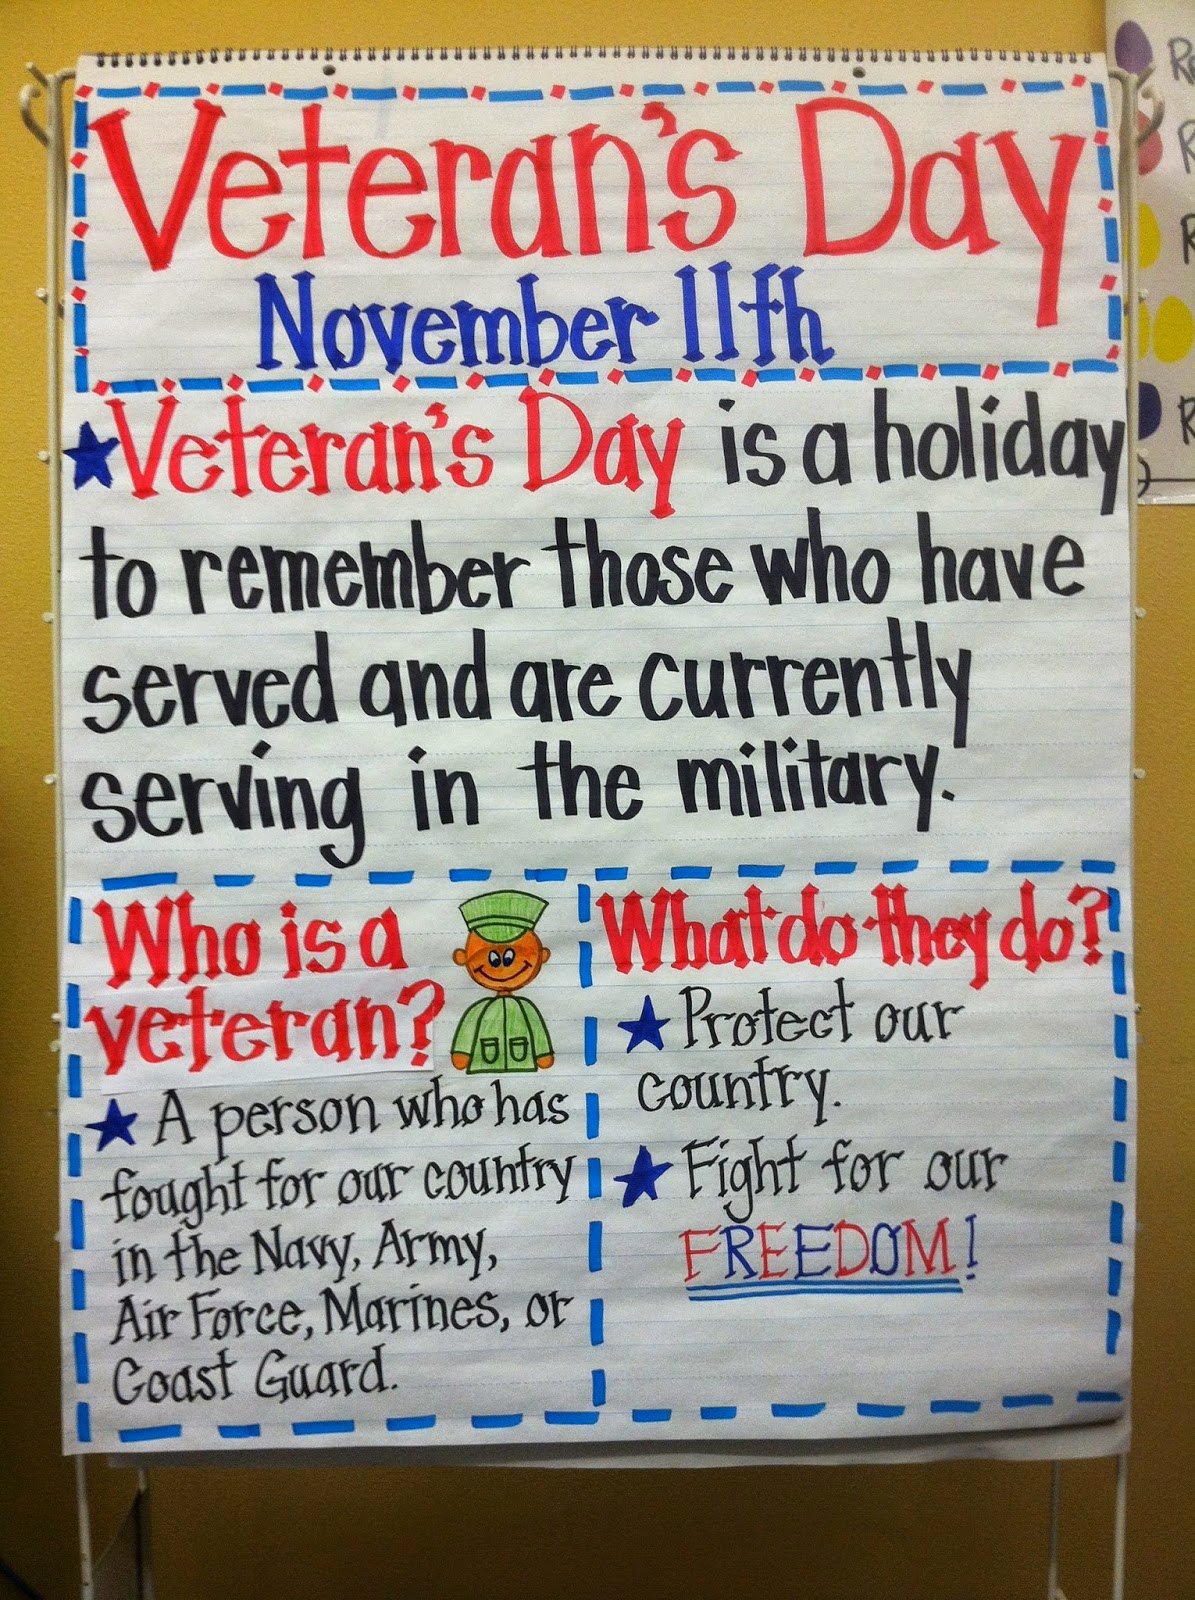 Veteran's Day
November 11th
Veteran's Day is a holiday
to remember those who have
served and are currently
serving in the military.
Who is a
veteran?
A person who has
fought for our country
in the Navy, Army,
Air Force, Marines, or
Coast Guard.
What do they do?
Protect our
country.
Fight for our
FREEDOM!
R
R
R
R